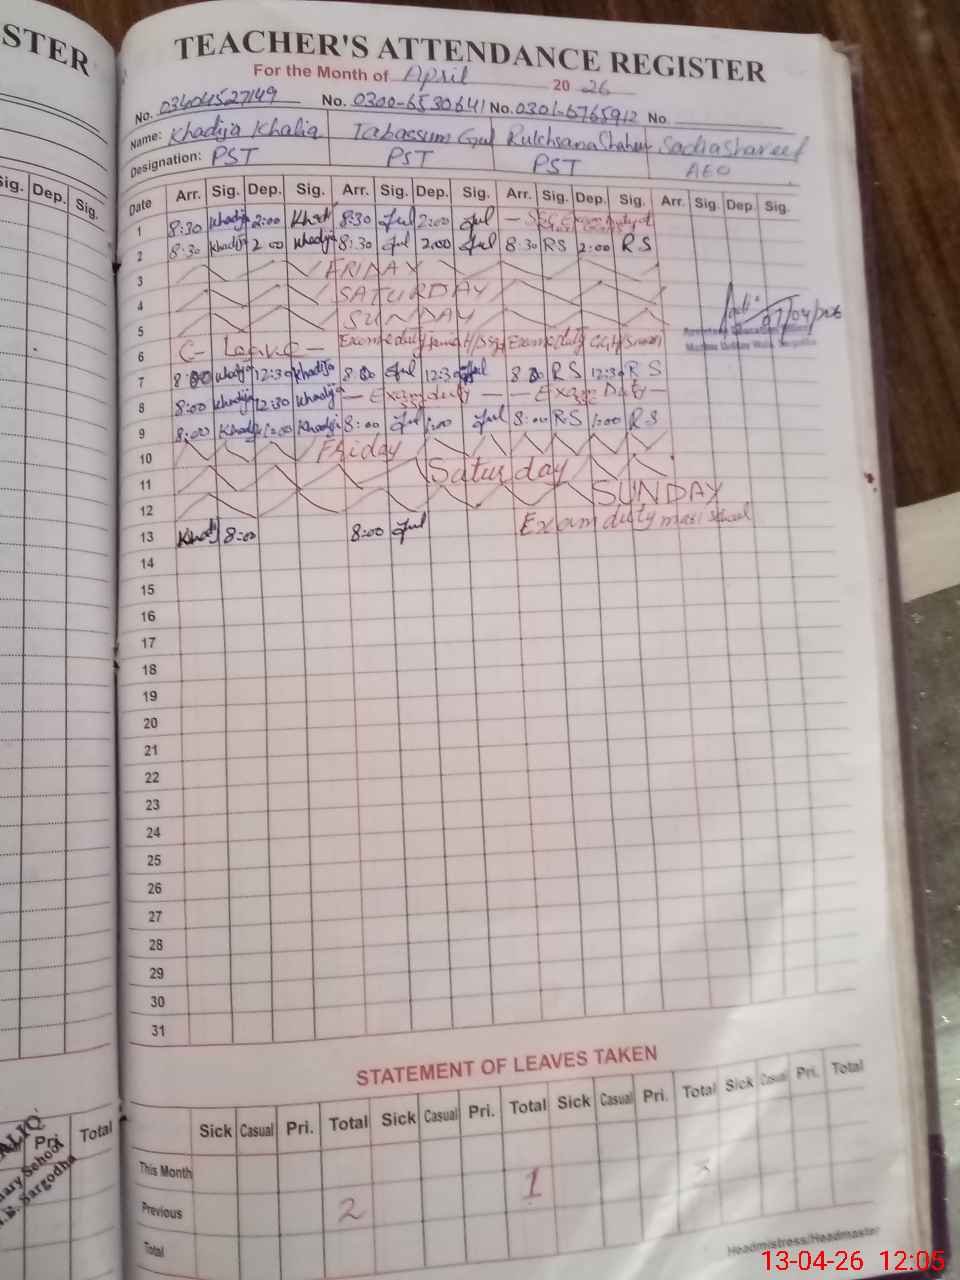 STER
TEACHER'S ATTENDANCE REGISTER
For the Month of April 2026
No. 03404527149 No. 0300-6530641 No. 0301-6765912 No.
Name: Khadija Khaliq Tabassum Gul Rukhsana Shaheen Sadia Shareef
Designation: PST PST PST AEO
Sig. Dep. Sig.
Date Arr. Sig. Dep. Sig. Arr. Sig. Dep. Sig. Arr. Sig. Dep. Sig. Arr. Sig. Dep. Sig.
1 8:30 Khadija 2:00 Khadija 8:30 Gul 2:00 Gul
2 8:30 Khadija 2:00 Khadija 8:30 Gul 2:00 Gul 8:30 RS 2:00 RS
3 FRIDAY
4 SATURDAY
5 SUNDAY
07/04/2026
6 C- Leave - Exam duty Exam duty
7 8:00 Khadija 12:30 Khadija 8:00 Gul 12:30 Gul 8:00 RS 12:30 RS
8 8:00 Khadija 12:30 Khadija - Exam duty - - Exam Duty -
9 8:00 Khadija 1:00 Khadija 8:00 Gul 1:00 Gul 8:00 RS 1:00 RS
10 Friday
11 Saturday
12 SUNDAY
13 Khadij 8:00 8:00 Gul Exam duty school
14
15
16
17
18
19
20
21
22
23
24
25
26
27
28
29
30
31
STATEMENT OF LEAVES TAKEN
Sick Casual Pri. Total Sick Casual Pri. Total Sick Casual Pri. Total Sick Casual Pri. Total
This Month
Previous 2 1
Total
Pri. Total
Headmistress/Headmaster
13-04-26 12:05